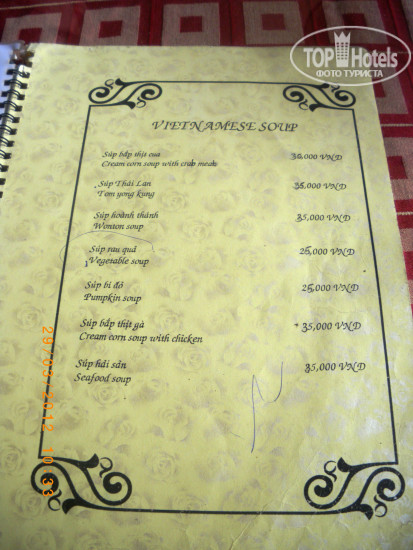 TOPHotels
ФОТО ТУРИСТА
VIETNAMESE SOUP
Súp bắp thịt cua 36,000 VND
Cream corn soup with crab meak
Súp Thái Lan 35,000 VND
Tom yong kung
Súp hoành thánh 35,000 VND
Wonton soup
Súp rau quả 25,000 VND
Vegetable soup
Súp bí đỏ 25,000 VND
Pumpkin soup
Súp bắp thịt gà 35,000 VND
Cream corn soup with chicken
Súp hải sản 35,000 VND
Seafood soup
29/05/2012 10:33